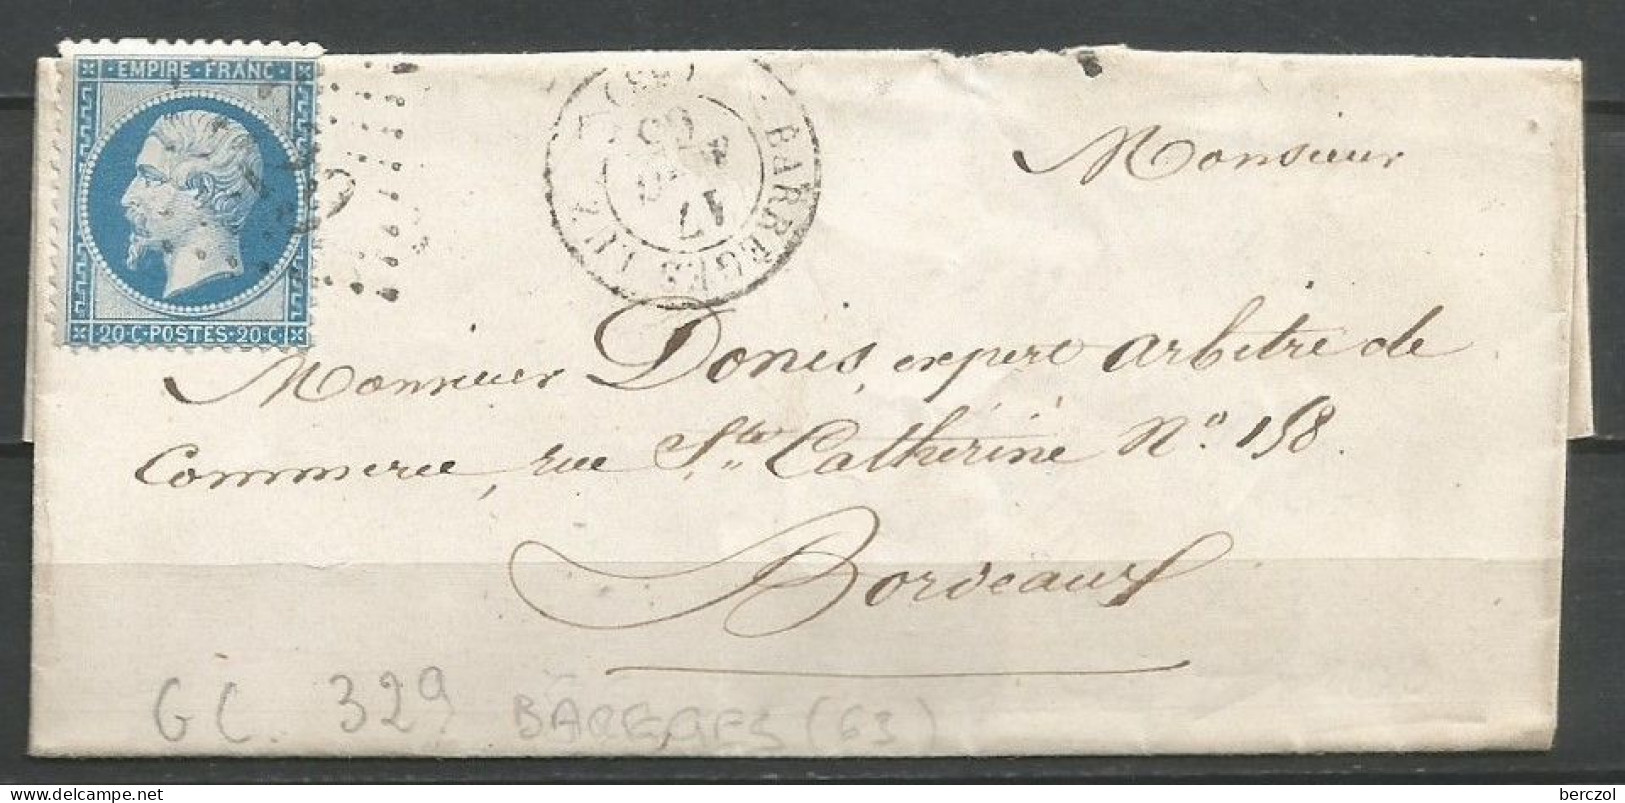 EMPIRE · FRANC
20·C·POSTES·20·C
BARREGES LUZ
17
65
Monsieur
Monsieur Donis, expert arbitre de
Commerce, rue Ste Catherine N° 158.
Bordeaux
GC. 329 BAREGES (63)
delcampe.net
berczol